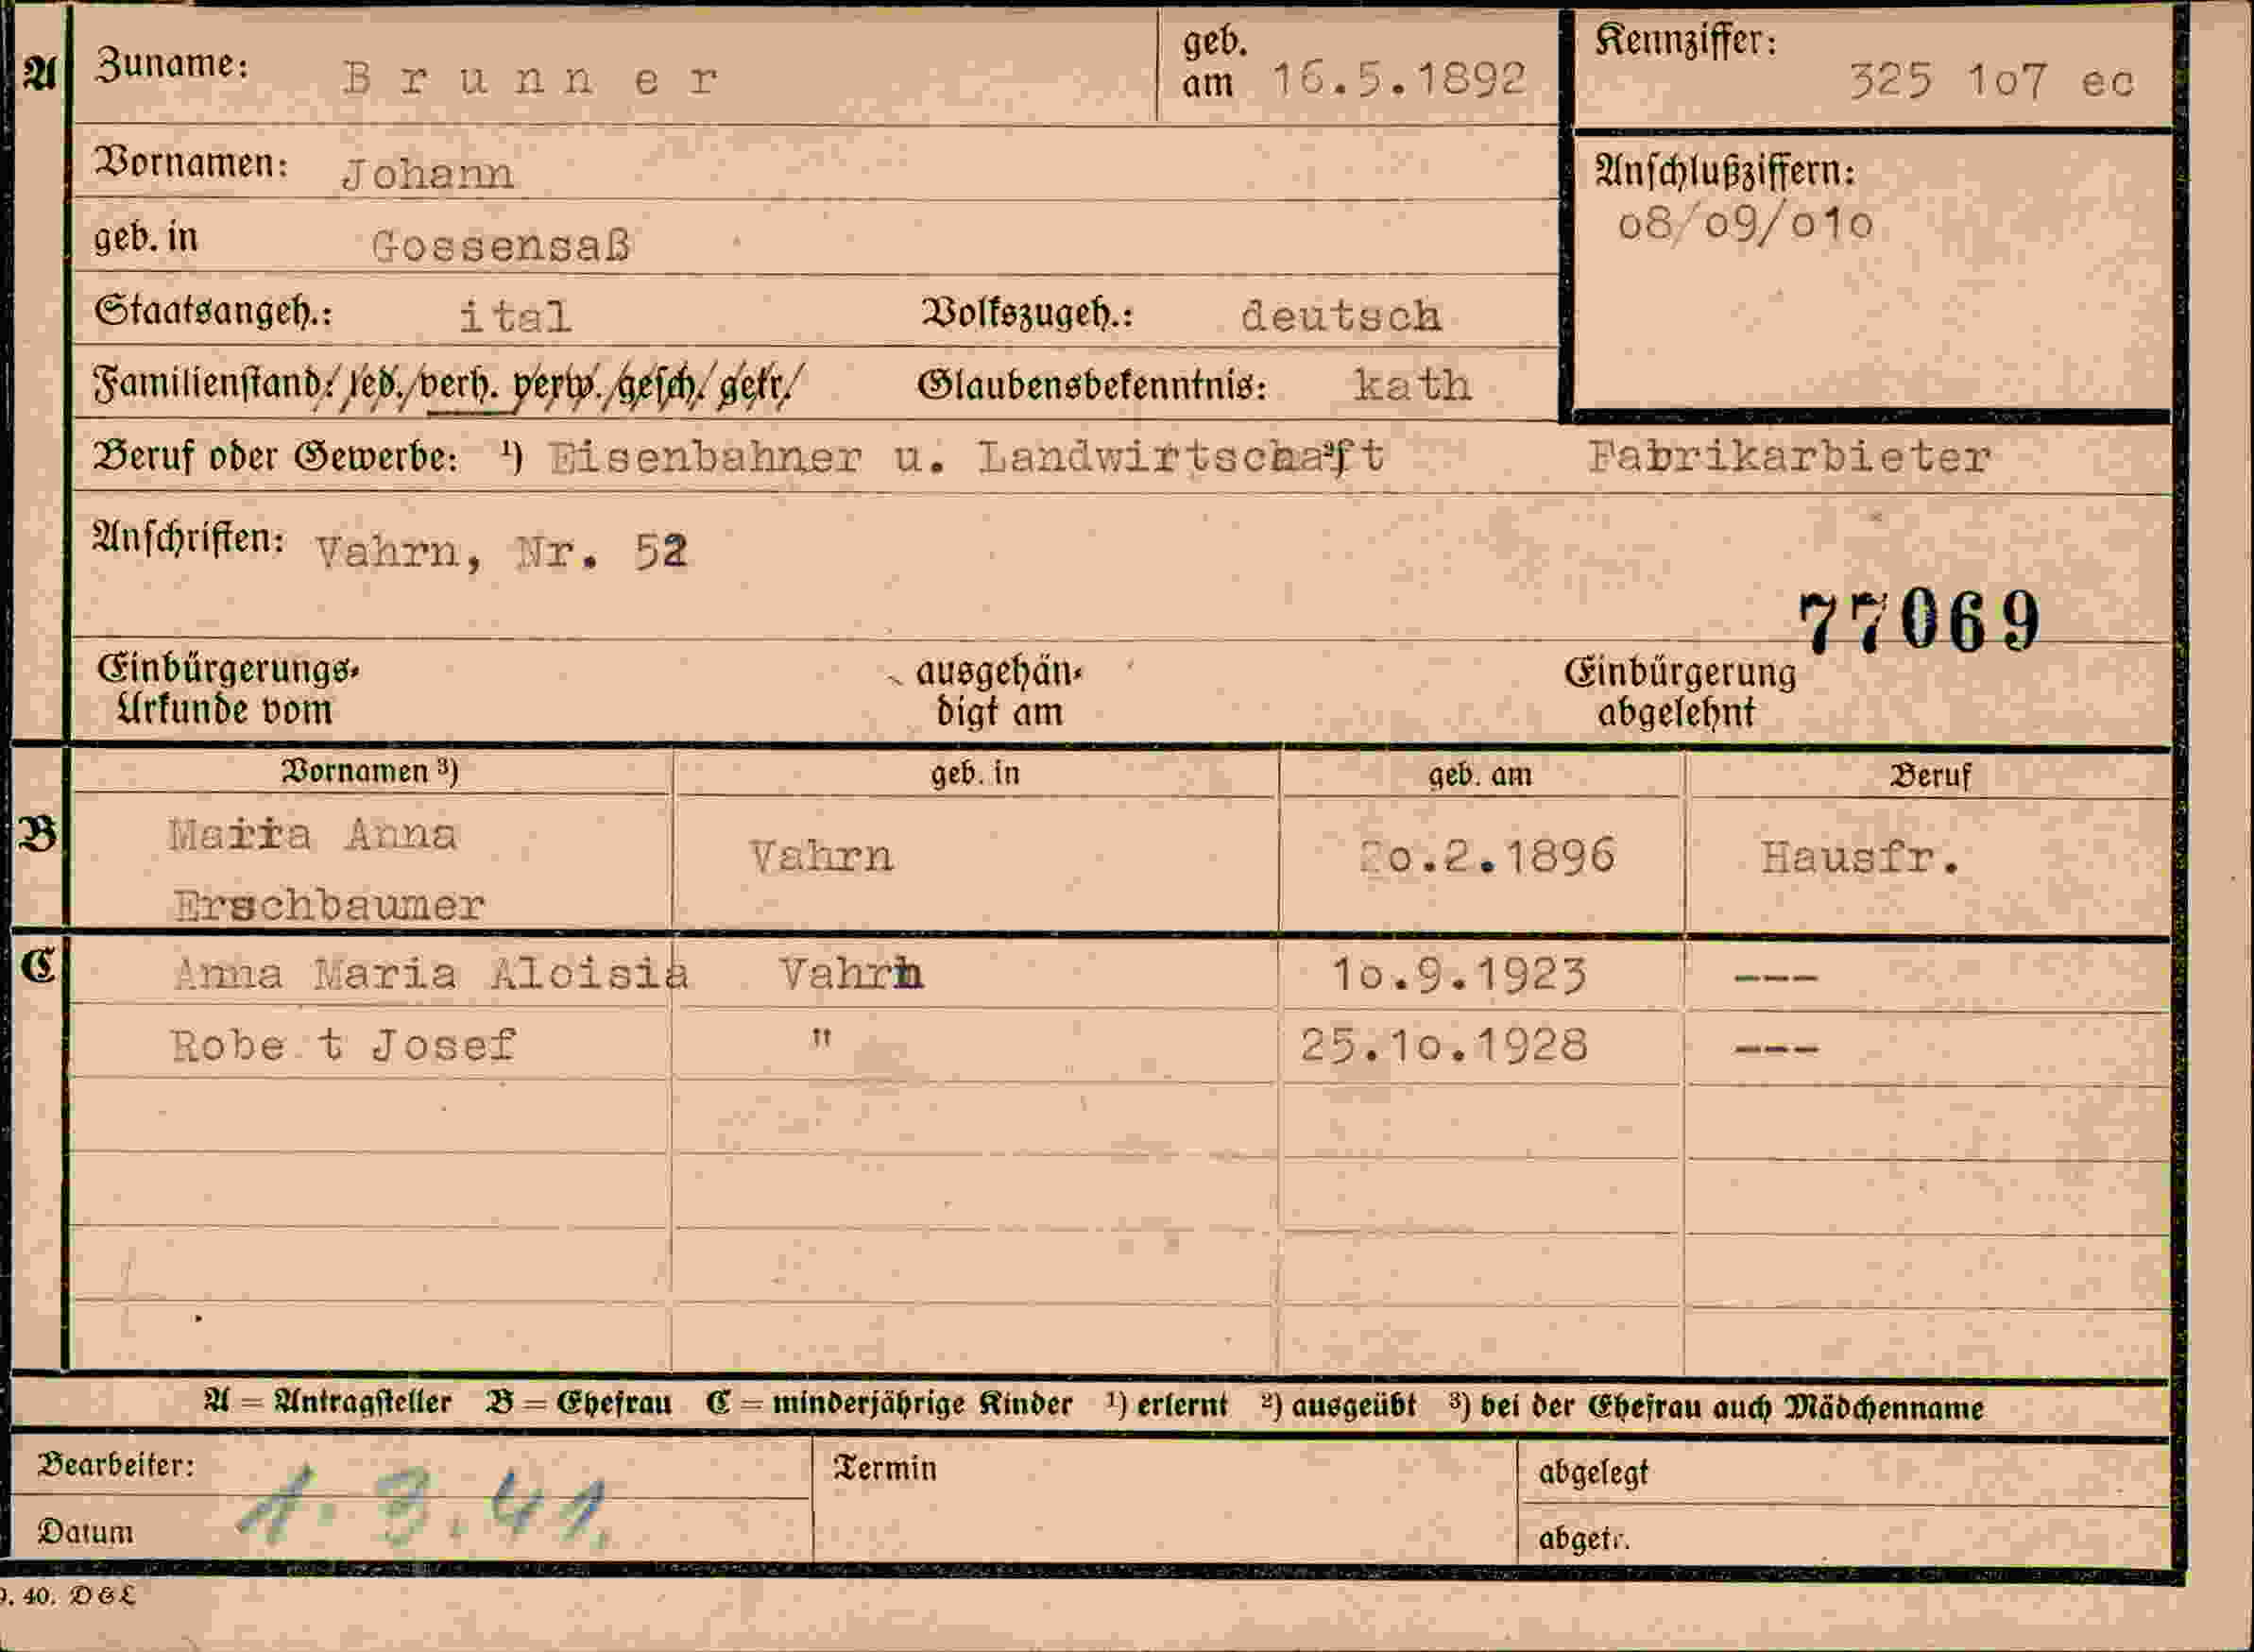 A Zuname: Brunner geb. am 16.5.1892 Kennziffer: 325 1o7 ec
Vornamen: Johann Anschlußziffern:
o8/o9/o1o
geb. in Gossensaß
Staatsangeh.: ital Volkszugeh.: deutsch
Familienstand: led. verh. verw. gesch. getr. Glaubensbekenntnis: kath
Beruf oder Gewerbe: ¹) Eisenbahner u. Landwirtschaft ²) Fabrikarbieter
Anschriften: Vahrn, Nr. 52
77069
Einbürgerungs- ausgehän- Einbürgerung
Urkunde vom digt am abgelehnt
Vornamen ³) geb. in geb. am Beruf
B Maria Anna
Vahrn 2o.2.1896 Hausfr.
Erschbaumer
C Anna Maria Aloisia Vahrn 1o.9.1923 ---
Robe t Josef " 25.1o.1928 ---
A = Antragsteller B = Ehefrau C = minderjährige Kinder ¹) erlernt ²) ausgeübt ³) bei der Ehefrau auch Mädchenname
Bearbeiter: Termin abgelegt
1.3.41.
Datum abgetr.
9. 40. D&L